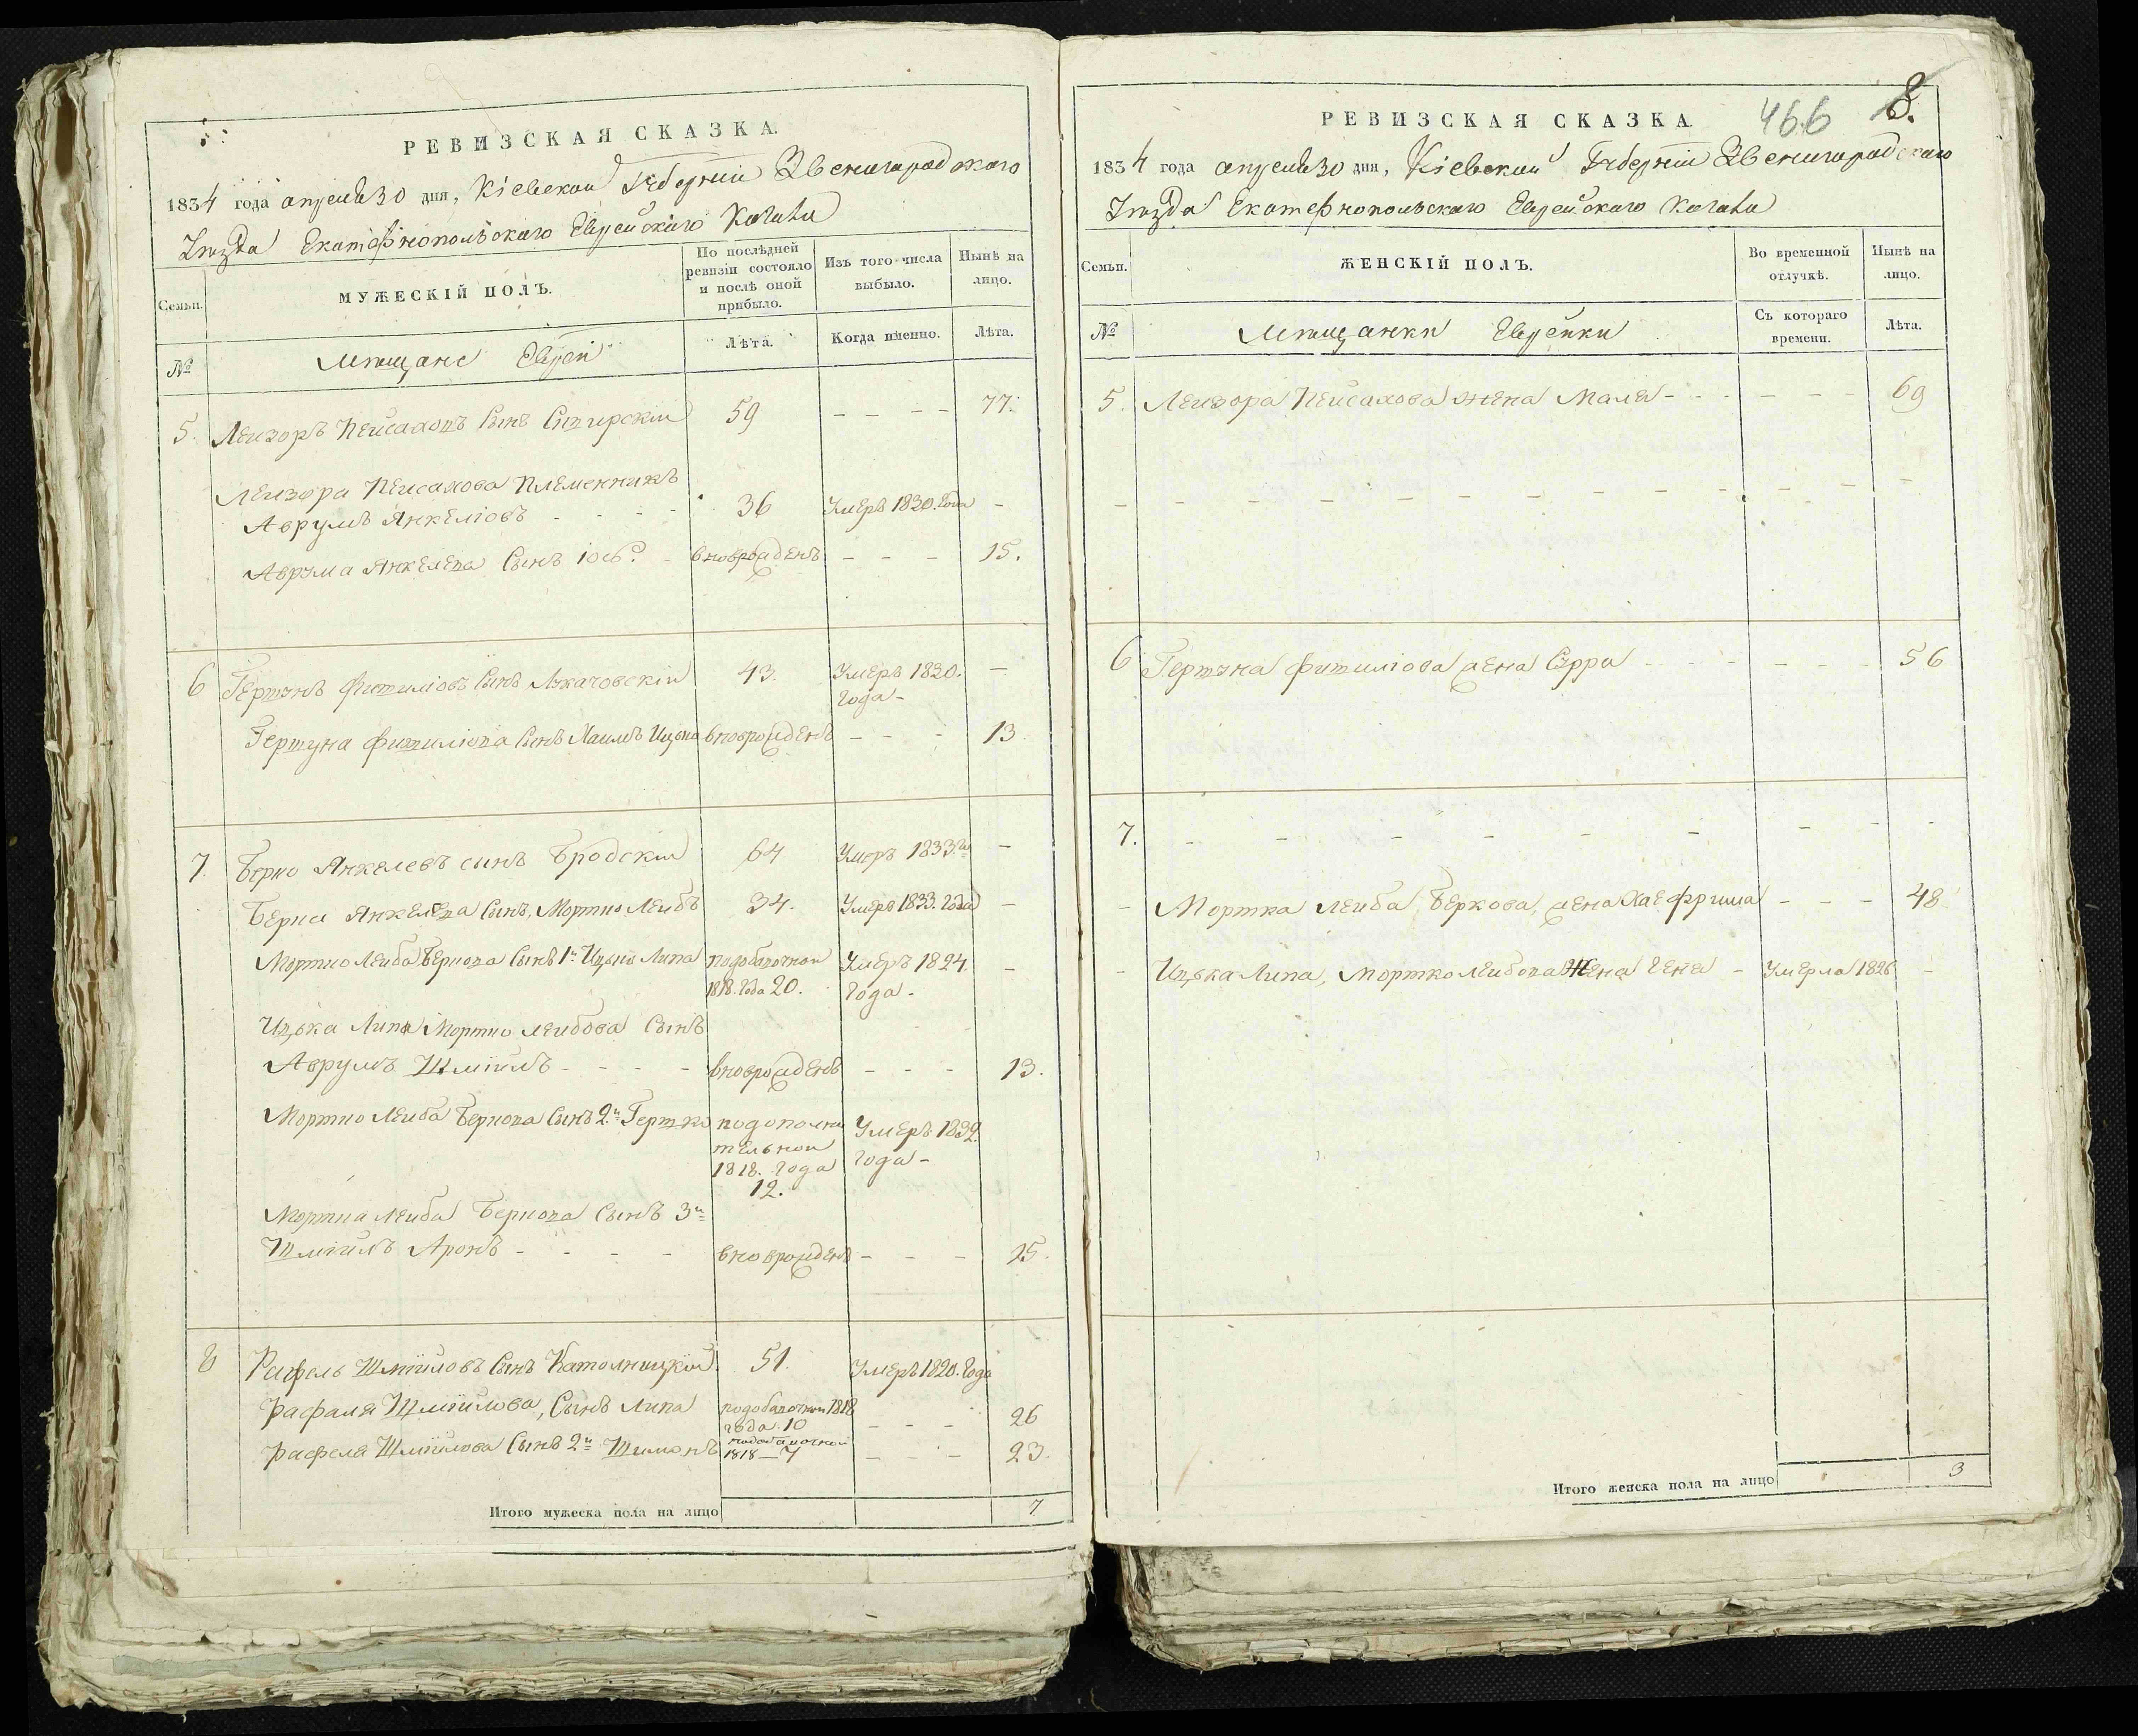 РЕВИЗСКАЯ СКАЗКА.
1834 года апреля 30 дня, Кіевской Губерніи Звенигородскаго
Уѣзда Екатеринопольскаго Еврейскаго Кагала
Семьи.
МУЖЕСКІЙ ПОЛЪ.
По послѣдней ревизіи состояло и послѣ оной прибыло.
Изъ того числа выбыло.
Нынѣ на лицо.
№
Мѣщане Евреи
Лѣта.
Когда именно.
Лѣта.
5. Лейзоръ Пейсаховъ Сынъ 59 - - - - 77.
Лейзора Пейсахова Племенникъ
Аврумъ Янкеліовъ - - - - 36 Умеръ 1830. Года -
Аврума Янкелева Сынъ Іосъ - вноврожденъ - - - 15.
6 Гершунъ Фишиліовъ Сынъ Лукачовскій 43. Умеръ 1820. Года - -
Гершуна Фишиліова Сынъ Хаимъ Ицько вноврожденъ - - - 13.
7. Берко Янкелевъ сынъ Бродскій 64 Умеръ 1833. го -
Берка Янкелева Сынъ, Мортко Лейбъ 34. Умеръ 1833. года -
Мортко Лейба Беркова Сынъ 1й Ицько Липа подобавочной 1818. Года 20. Умеръ 1824. Года - -
Ицька Липа Мортко Лейбова Сынъ
Аврумъ Шміилъ - - - - вноврожденъ - - - 13.
Мортко Лейба Беркова Сынъ 2й Гершко подополнительной 1818. Года 12. Умеръ 1832. Года -
Мортка Лейба Беркова Сынъ 3й
Шміилъ Аронъ - - - - вноврожденъ - - - 15.
8 Рафель Шміиловъ Сынъ 51. Умеръ 1820. Года
Рафаля Шміилова, Сынъ Липа подобавочной 1818 года. 10 - - - 26
Рафеля Шміилова Сынъ 2й Шимонъ подобавочной 1818 - 7 - - - 23.
Итого мужеска пола на лицо 7
466 8.
РЕВИЗСКАЯ СКАЗКА.
1834 года апреля 30 дня, Кіевской Губерніи Звенигородскаго
Уѣзда Екатеринопольскаго Еврейскаго Кагала
Семьи.
ЖЕНСКІЙ ПОЛЪ.
Во временной отлучкѣ.
Нынѣ на лицо.
№
Мѣщанки Еврейки
Съ котораго времени.
Лѣта.
5. Лейзора Пейсахова жена Маля - - - - - 69
6 Гершуна Фишиліова жена Сурра - - - - - - 56
7. - - - - - - - - -
- Мортка Лейба Беркова, жена Хае Фрима - - - 48
- Ицька Липа, Мортко Лейбова Жена Геня - Умерла 1826 -
Итого женска пола на лицо 3